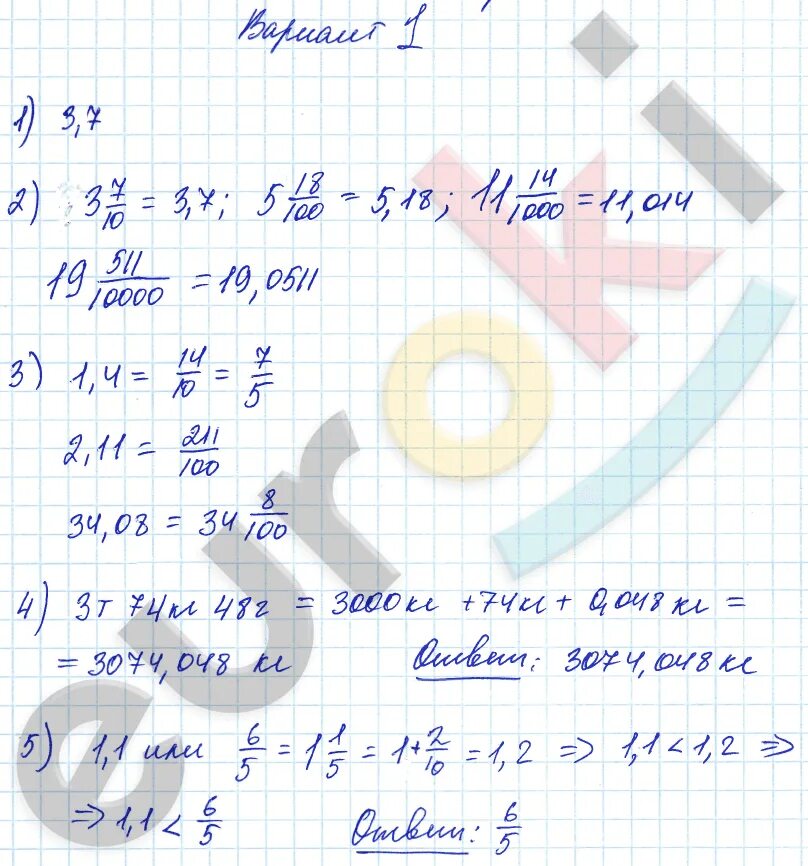 Вариант 1
1) 3,7
2) 3 7/10 = 3,7; 5 18/100 = 5,18; 11 14/1000 = 11,014
19 511/10000 = 19,0511
3) 1,4 = 14/10 = 7/5
2,11 = 211/100
34,08 = 34 8/100
4) 3т 74кг 48г = 3000кг + 74кг + 0,048кг =
= 3074,048 кг Ответ: 3074,048кг
5) 1,1 или 6/5 = 1 1/5 = 1 + 2/10 = 1,2 => 1,1 < 1,2 =>
=> 1,1 < 6/5 Ответ: 6/5
euroki